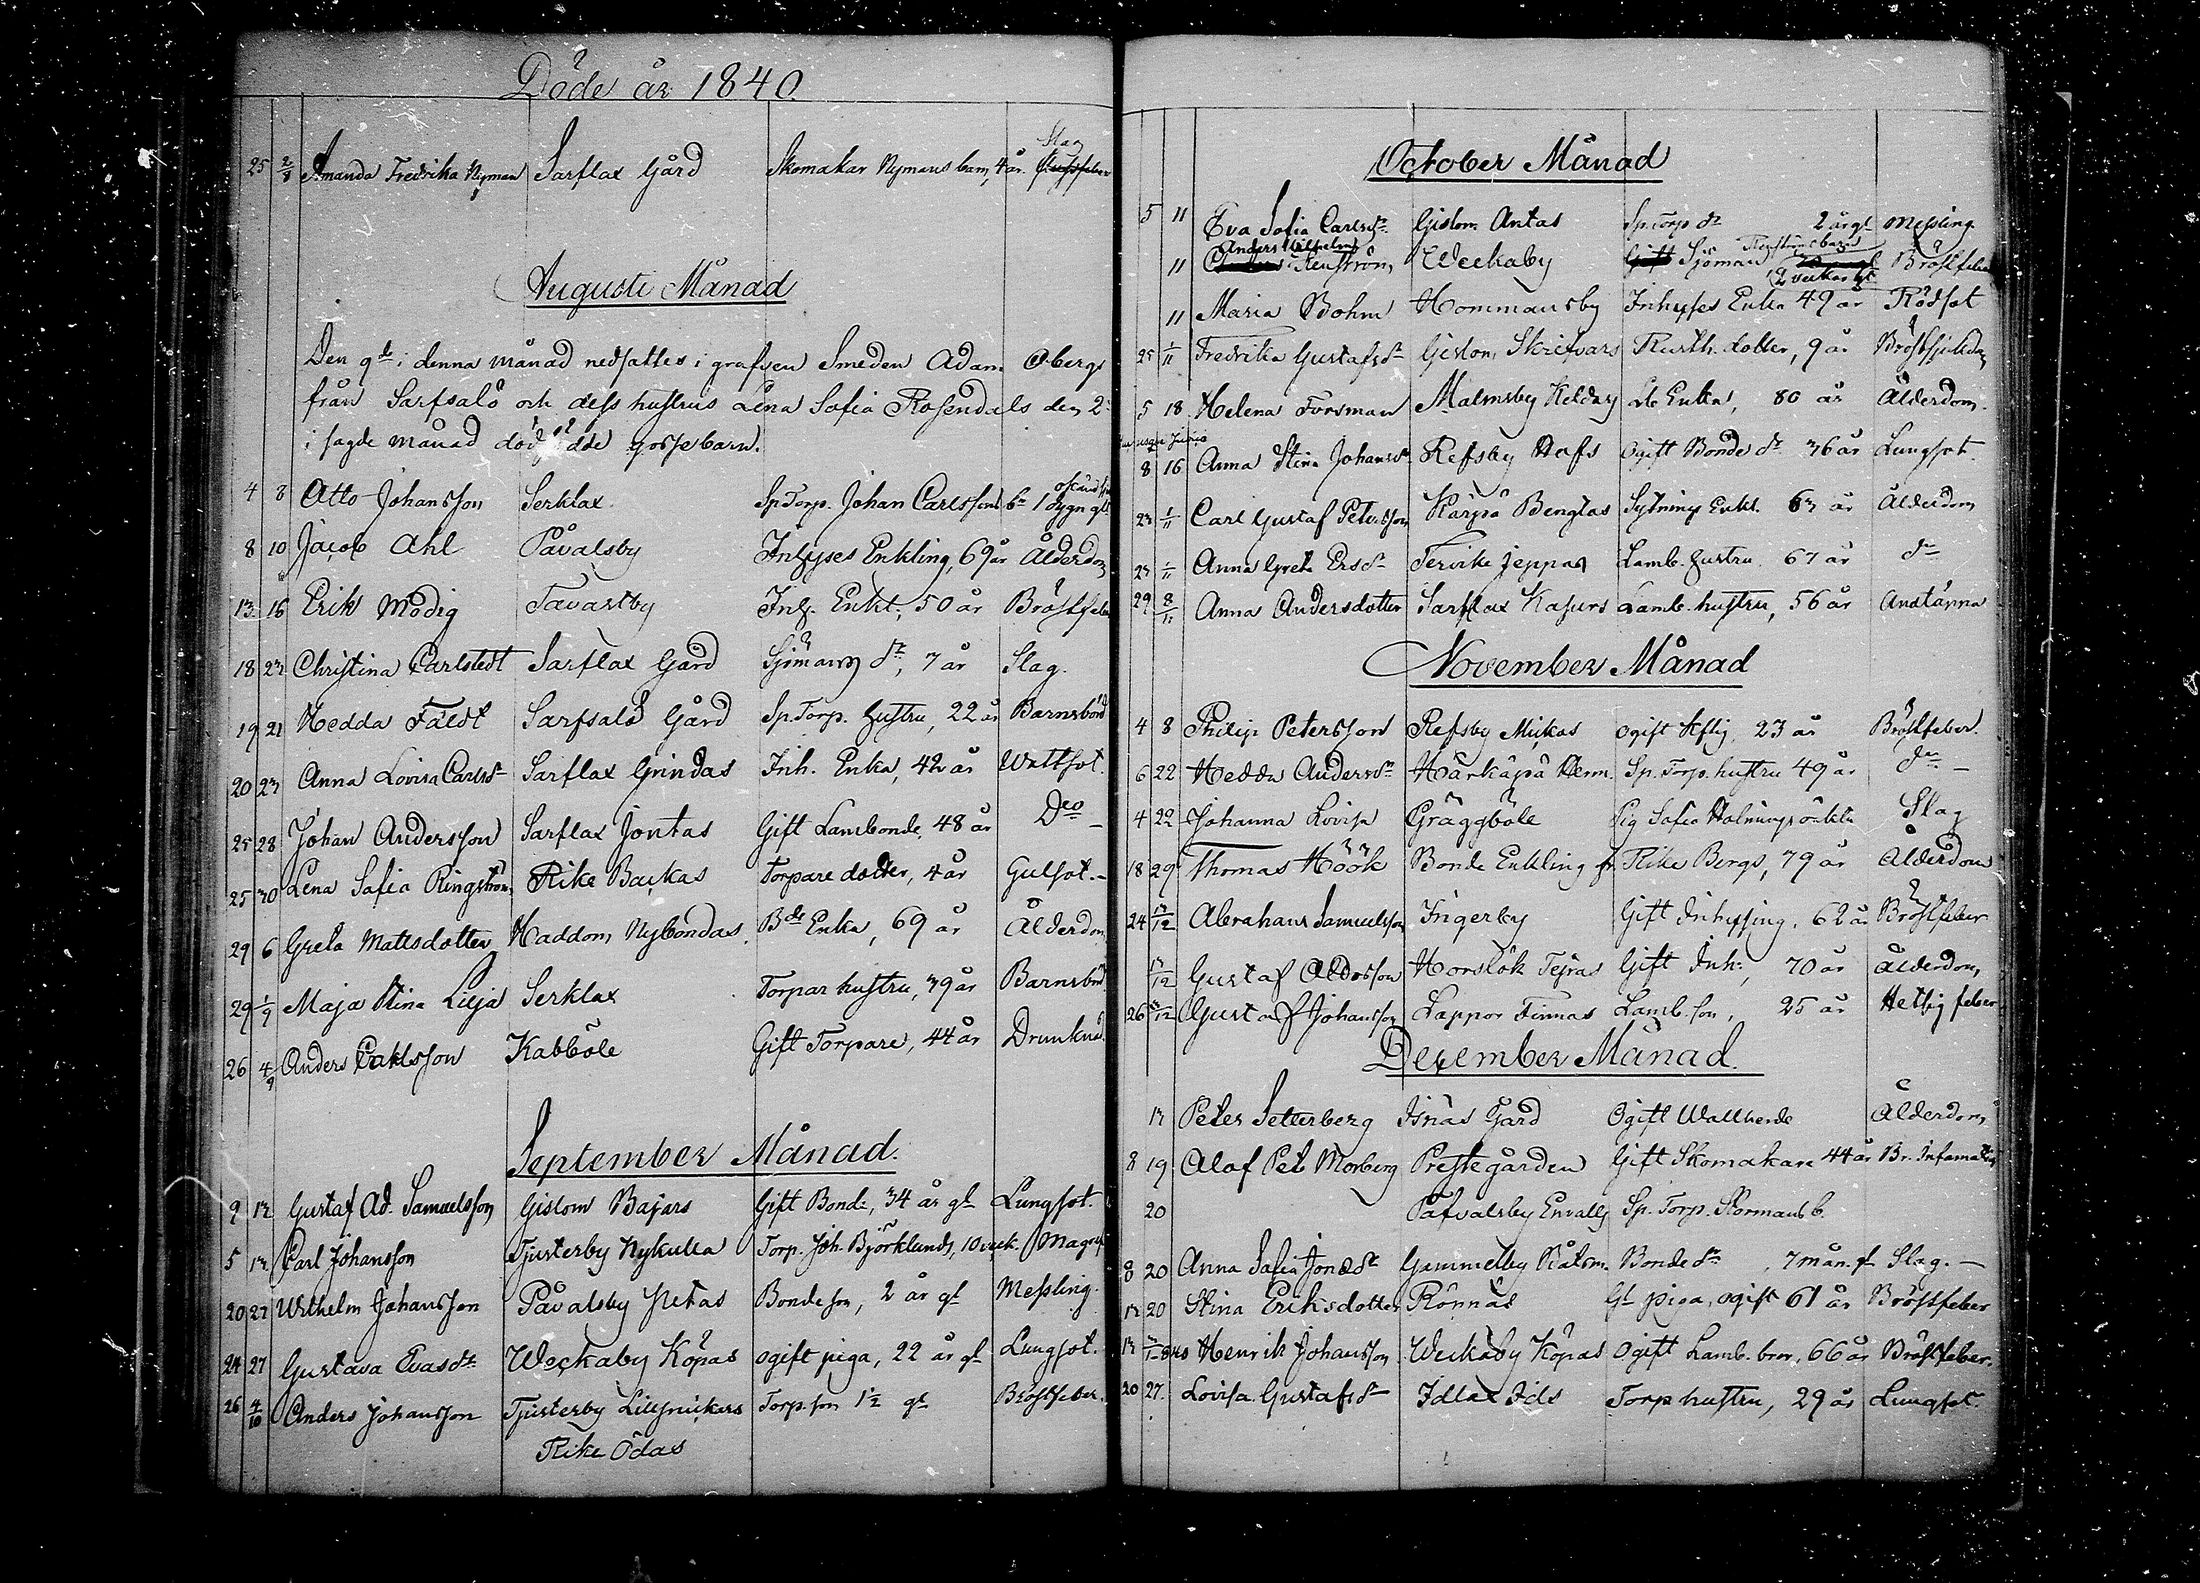 Döde år 1840.
25 2/8 Amanda Fredrika Nyman Sarflax Gård Skomakar Nymans barn, 4 år. Slag
Augusti Månad
Den 9de i denna månad nedsattes i grafven Smeden Adam Obergs
från Sarfsalö och dess hustrus Lena Sofia Rosendals den 2
i sagde månad dödfödde gossebarn.
4 8 Otto Johansson Serklax Sp. Torp. Johan Carlssons b. 1 dygn glt
8 10 Jacob Ahl Påvalsby Inhyses Enkling, 69 år Ålderdom
13 16 Erik Modig Tavastby Inh. Enkl., 50 år Bröstfeber
18 23 Christina Carlstedt Sarflax Gård Sjömans dr, 7 år Slag.
19 21 Hedda Fäldt Sarfsalö Gård Sp. Torp. hustru, 22 år Barnsbörd
20 23 Anna Lovisa Carlsdr Sarflax Grindas Inh. Enka, 42 år Wattsot.
25 28 Johan Andersson Sarflax Jontas Gift Lambonde, 48 år Do –
25 30 Lena Sofia Ringström Rike Backas Torpare dotter, 4 år Gulsot. –
29 6 Greta Mattsdotter Haddom Nybondas Bde Enka, 69 år Ålderdom
29 1/9 Maja Stina Lilja Serklax Torpar hustru, 39 år Barnsbörd
26 4/9 Anders Carlsson Kabböle Gift Torpare, 44 år Drunknad
September Månad.
9 13 Gustaf Ad. Samuelsson Gislom Bajars Gift Bonde, 34 år gl Lungsot.
5 13 Carl Johansson Tjusterby Nykulla Torp. Joh. Björklunds, 10 veck.
20 27 Wilhelm Johansson Påvalsby Petas Bondeson, 2 år gl Messling.
24 27 Gustava Evasdr Weckaby Köpas ogift piga, 22 år gl Lungsot.
26 4/10 Anders Johansson Tjusterby Lillmickars Torp. son 1½ gl Bröstfeber.
Rike Ödas
October Månad
5 11 Eva Sofia Carlsdr Gislom Antas Sp. Torp dr 2 år gl Messling.
Anders Wilhelm
11 Stenström Weckaby Sjöman Stenströms barn 2 veckor gl Bröstfeber
11 Maria Bohm Hommansby Inhyses Enka 49 år Rödsot
25 1/11 Fredrika Gustafsdr Gislom Skrifvars Rusth. dotter, 9 år Bröstsjukdom
5 18 Helena Forsman Malmsby Helday Enka, 80 år Ålderdom.
8 16 Anna Stina Johansdr Refsby Hafs Ogift Bonde dr 36 år Lungsot.
23 1/11 Carl Gustaf Petersson Kärpå Bengtas Sytnings Enkl. 63 år Ålderdom
23 1/11 Anna Greta Ersdr Tervike Jeppas Lamb. hustru 67 år do
29 8/11 Anna Andersdotter Sarflax Kasurs Lamb. hustru, 56 år Andtäppa
November Månad
4 8 Philip Petersson Refsby Mickas ogift 23 år Bröstfeber.
6 22 Hedda Andersdr Härkäpä Herm. Sp. Torp. hustru 49 år do –
4 22 Johanna Lovisa Gräggböle Pig Safia Holmings oäkta Slag
18 29 Thomas Höök Bonde Enkling fr. Rike Bergs, 79 år Ålderdom
24 13/12 Abraham Samuelsson Ingerby Gift Inhysing, 62 år Bröstfeber
13/12 Gustaf Adolsson Horslök Tejras Gift Inh:, 70 år Ålderdom,
26 13/12 Gustaf Johansson Lappor Finnas Lamb. son, 25 år Hetsig feber
December Månad.
13 Peter Setterberg Isnäs Gård Ogift Wallherde Ålderdom
8 19 Olof Pet Morberg Prestegården Gift Skomakare 44 år Br. Infamation
20 Påfvalsby Envalls Sp. Torp. Stormans b.
8 20 Anna Safia Jonasdr Gammelby Råtsm. Bonde dr, 7 mån. gl Slag. –
13 20 Stina Eriksdotter Rönnäs Gl. piga, ogift 61 år Bröstfeber
13 Henrik Johansson Weckaby Köpas Ogift Lamb. bror, 66 år Bröstfeber.
20 27. Lovisa Gustafsdr Idlax Ids Torp hustru, 29 år Lungsot.